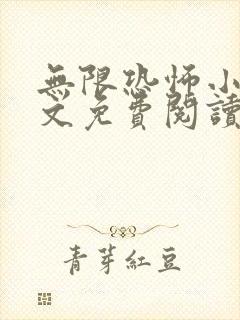 無限恐怖小
文免費閱讀
青芽紅豆